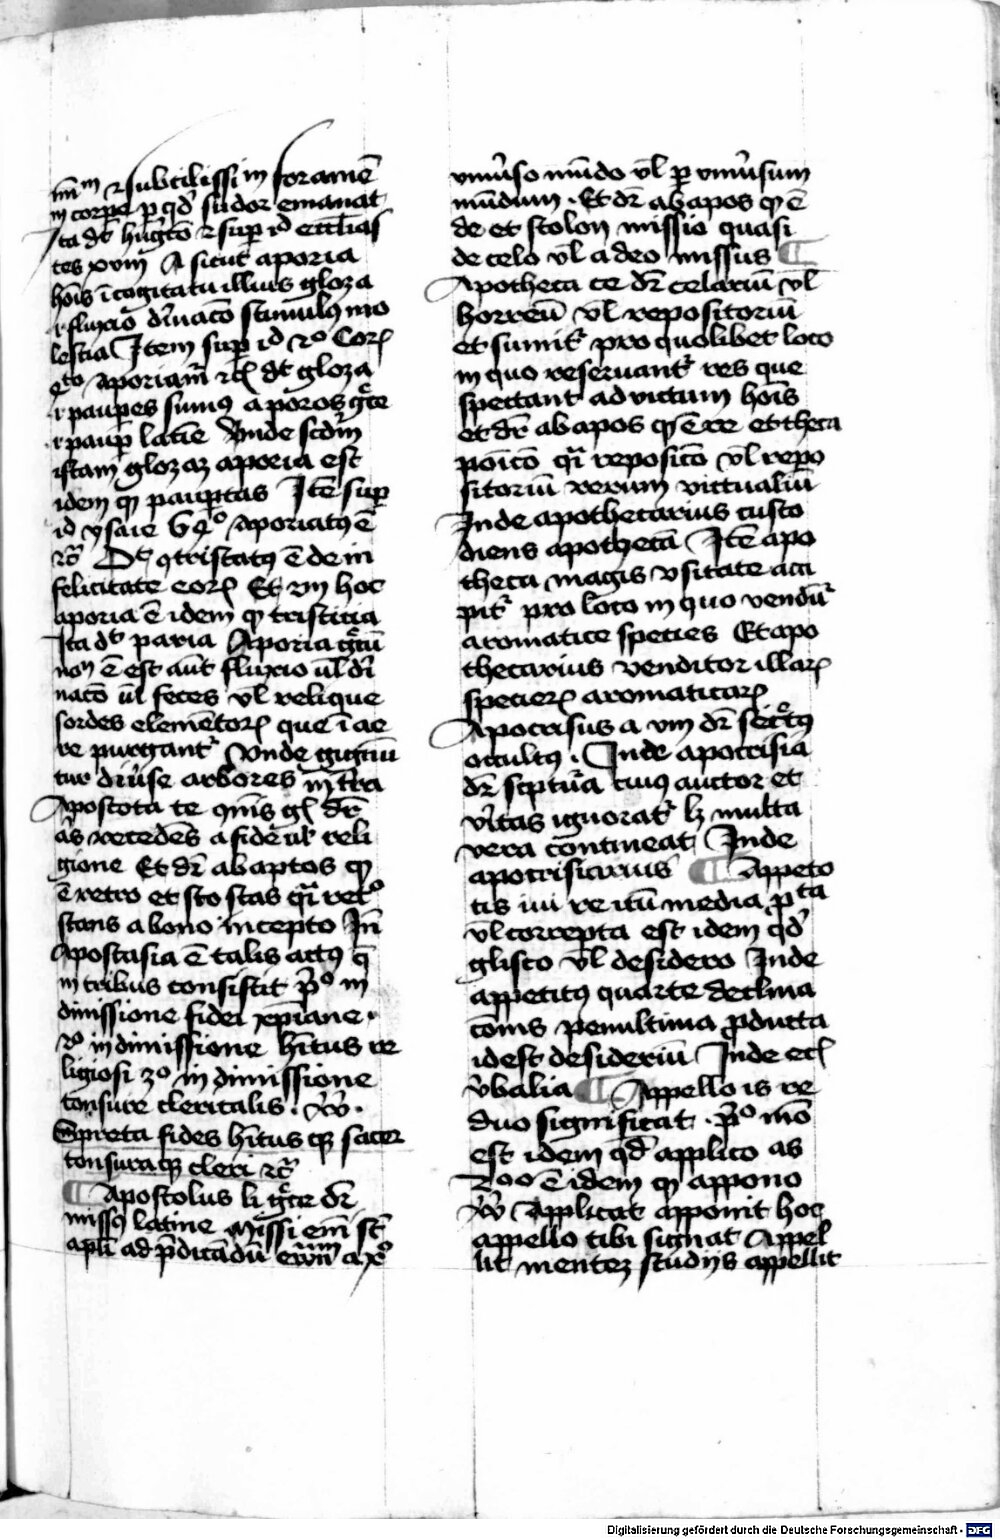 mm̄ ⁊ subtilissim foramē
in corpe p qd' sudor emanat
Ita dt hug'cō ⁊ sup id eccl'ias
tes xviij A sicut aporia
hōis ī cogitatu illius gloza
.i. fluxio dīuacō stimulus mo
lestia Item sup id 2o Cor
4to aporiam̄ ⁊c dt gloza
.i. paupes sumus aporos gce
.i. paup latīe Unde scdm
istam glozaz aporia est
idem qp paupertas Itē sup
id ysaie 64o aporiatus ē
⁊c̄ Dt 9tristatus ē de in
felicitate eorum Et vm hoc
aporia ē idem qp tristitia
Ita dt paria Aporia gtiū
non ē est aut fluxio ul dī
natō ul feces vl relique
sordes elementorum que ī ae
re purgantur Unde gignū
tur diu'se arbores in tr'a
Apostota te oms gl dr
als recedēs a fide ul' reli
gione Et dr̄ ab aptos qp
ē retro et sto stas qi ret°
stans a bono incepto In̄
Apostasia ē talis actus q̄
in tribus consistit p̄o in
dimissione fidei xp̄iane .
2o in dimissione hitus re
ligiosi 3o in dimissione
tonsure clericalis . W .
Spreta fides hitus qz sacer
tonsuraqz cleri ⁊c̄
Apostolus li gce dr̄
missus latine Missi em̄ st̄
apl'i ad p̄dicādū ew̄m a xo
vniu'so mūdo vl p vniu'sum
mūdum . Et dr̄ ab apos qp ē
de et stolon missio quasi
de celo vl a deo missus
Apotheca ce dr̄ celariū vl
horreū vl repositoriū
et sumitur pro quolibet loco
in quo reseruantur res que
spectant ad victum hōis
et dr̄ ab apos qp ē re et theca
poītō qi repositō vl repo
sitoriū rerum victualiū
Inde apothecarius custo
diens apothecā Itē apo
theca magis vsitate acci
pitur pro loco in quo vendūtur
aromatice species Et apo
thecarius venditor illarum
specierum aromaticarum
Apocrisus a vm dr̄ secretus
occultus . Inde apocrisia
dr̄ sc'ptura cuius auctor et
v'itas ignoratur lz multa
vera contineat Inde
apocrisicirius Appeto
tis iui re itū media p̄cta
vl correpta est idem qd'
glisco vl desidero Inde
appetitus quarte declina
cōnis penultima p̄ducta
idest desideriū Inde ec
v'balia Appello is re
duo significat . po mō
est idem qd' applico as
2oo ē idem qp appono
W Applicat apponit hoc
appello tibi signat Appel
lit mentez studijs appellit
Digitalisierung gefördert durch die Deutsche Forschungsgemeinschaft - DFG